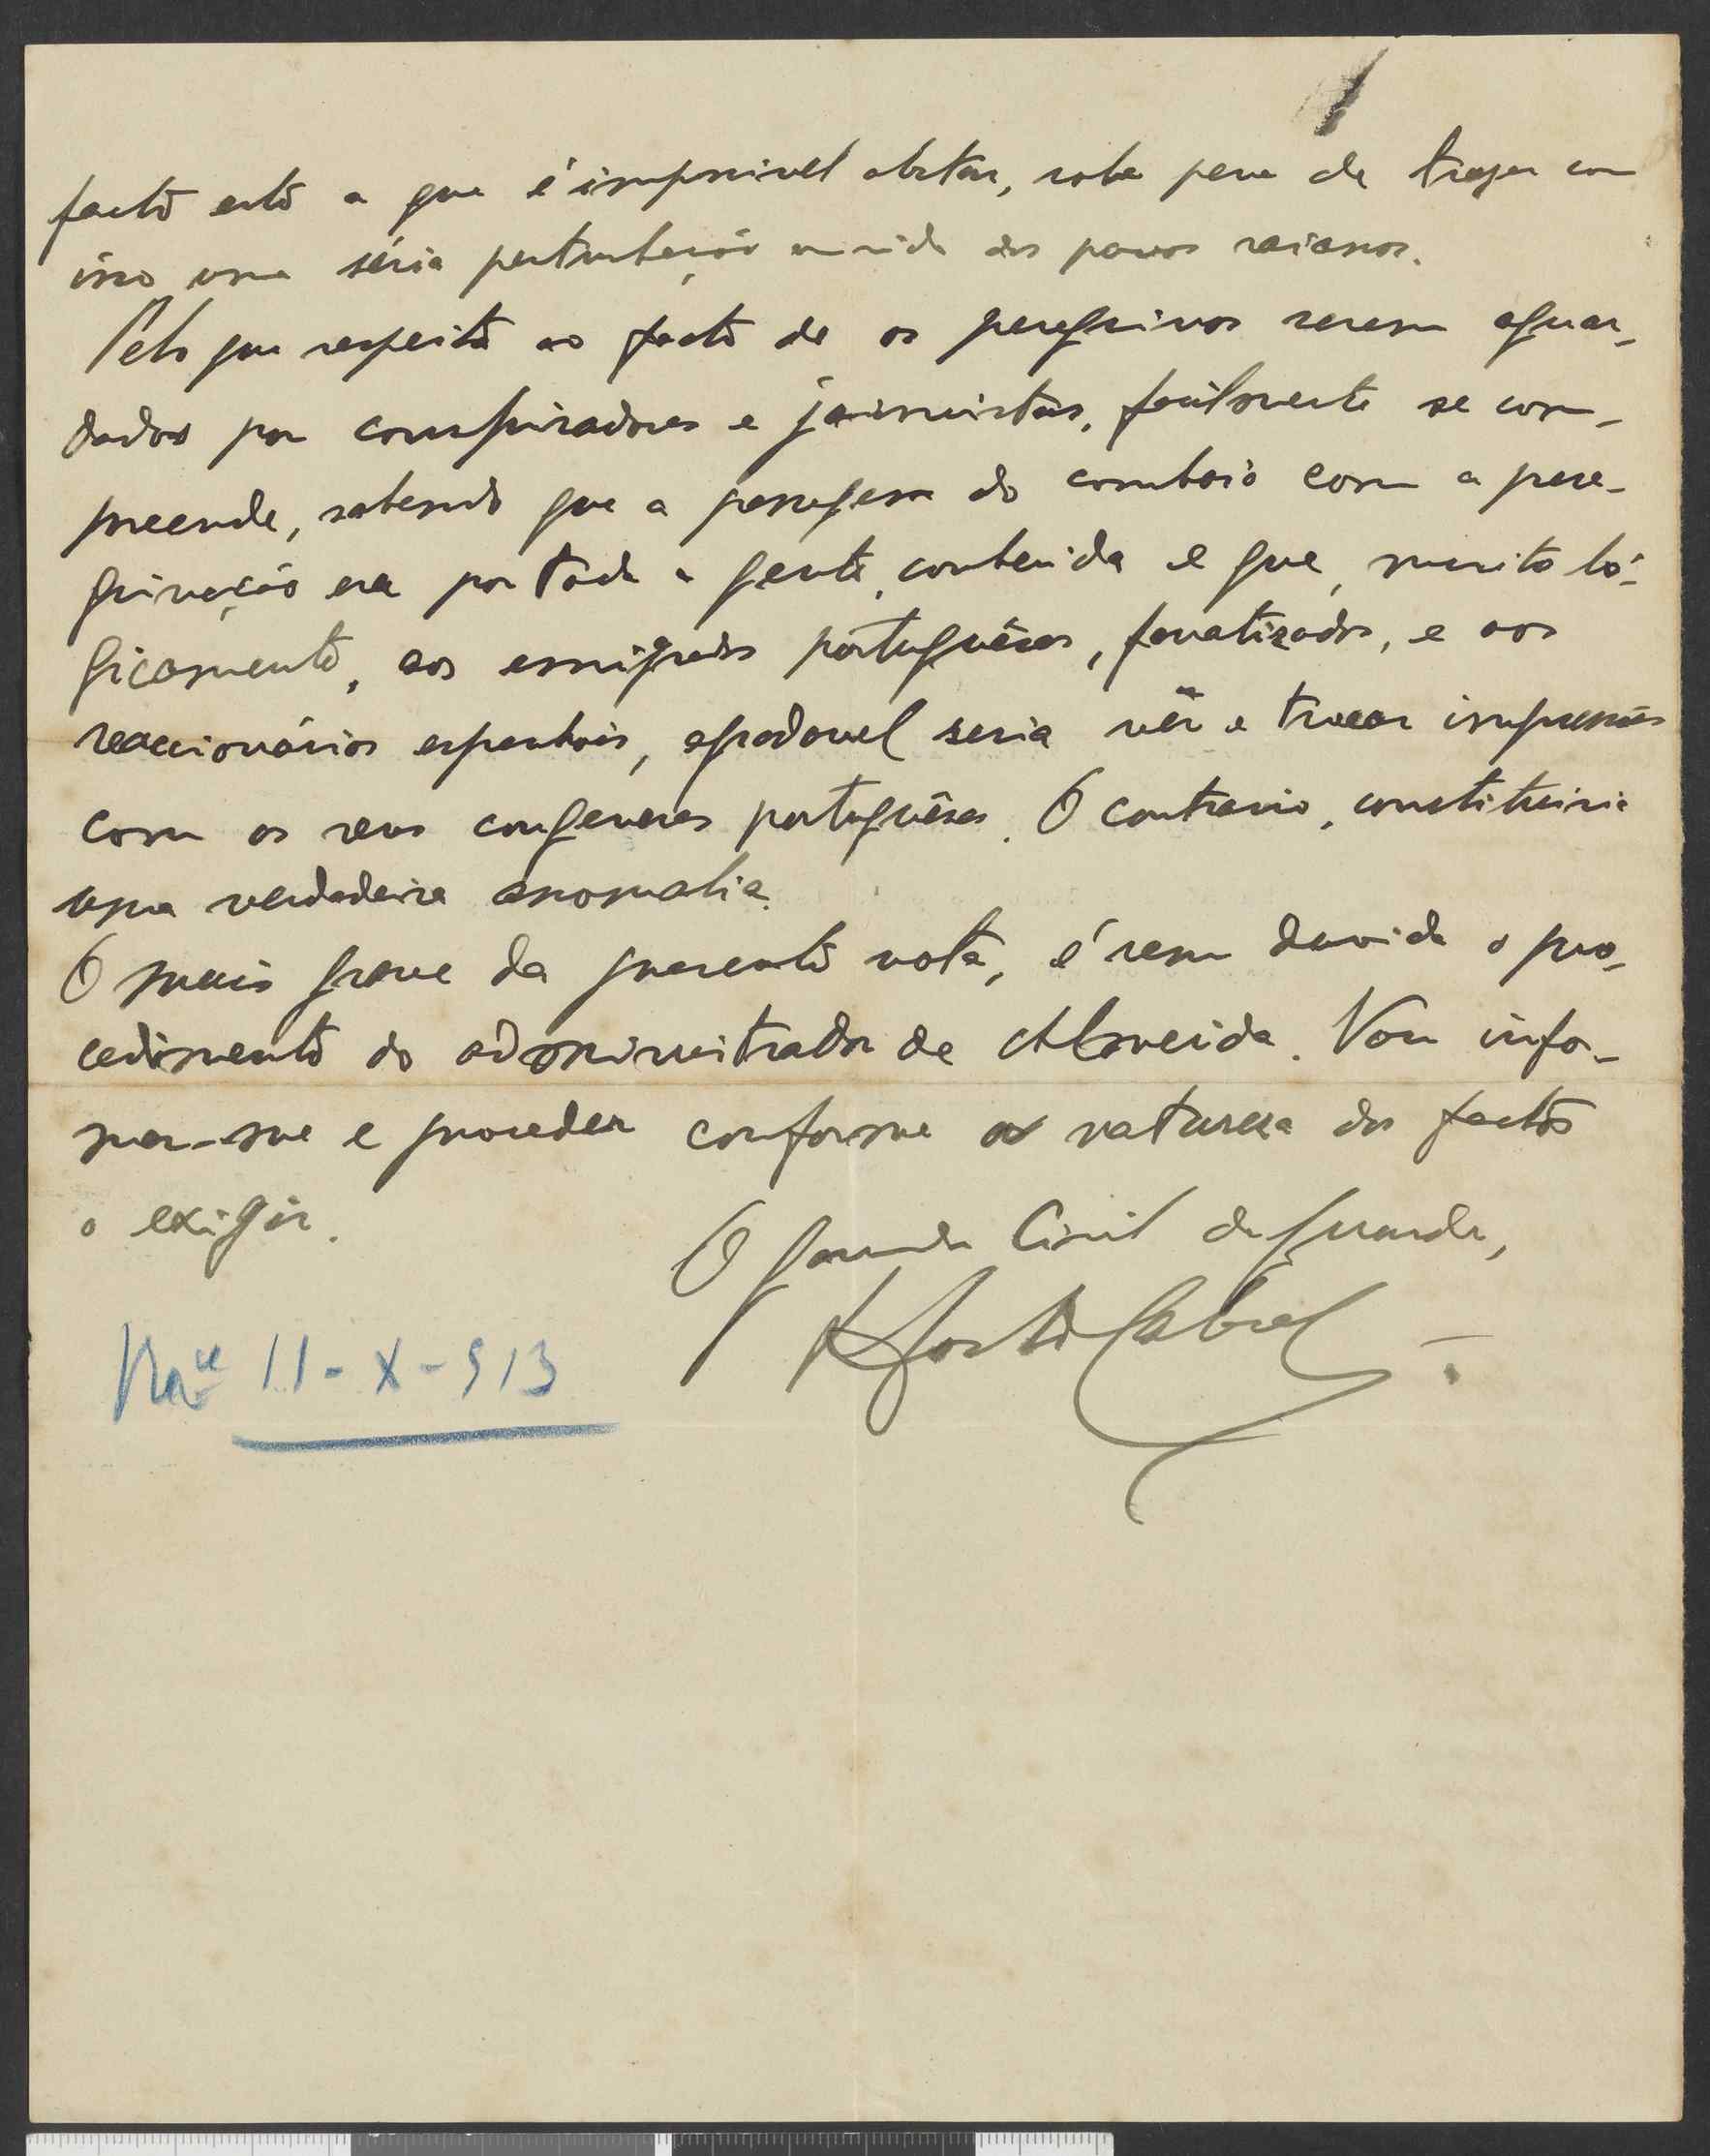 facto esto a que é impossivel obstar, sobe pena de trazer com
isso uma séria perturbação na vida dos povos raianos.
Pelo que respeita ao facto de os peregrinos serem aguar-
dados por conspiradores e jaimistas, facilmente se com-
preende, sabendo que a passagem do comboio com a pere-
grinação era por toda a gente, conhecida e que, muito ló-
gicamente, aos emigrados portuguêses, fanatizados, e aos
reaccionários espanhois, agradavel seria vêr e trocar impressões
com os seus congeneres portuguêses. O contrario, constituiria
uma verdadeira anomalia.
O mais grave da presente nota, é sem duvida o pro-
cedimento do administrador de Almeida. Vou infor-
mar-me e proceder conforme a natureza dos factos
o exigir.
O Governador Civil da Guarda,
Cabral
11-X-913